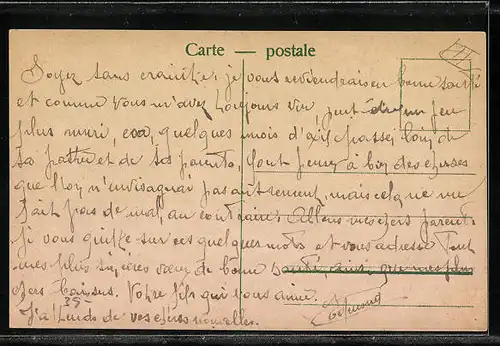 Carte — postale
Soyez sans crainte, je vous reviendrai en bonne santé
et comme vous m'avez toujours vu, peut être un peu
plus muri, car, quelques mois d'exil passés loin de
sa patrie et de ses parents, font penser à bien des choses
que l'on n'envisageait pas autrement, mais cela ne me
fait pas de mal, au contraire. Allons mes chers parents
je vous quitte sur ces quelques mots et vous adresse tout
mes plus sincères vœux de bonne santé, ainsi que mes plus
chers baisers. Votre fils qui vous aime.
J'attends de vos chères nouvelles.